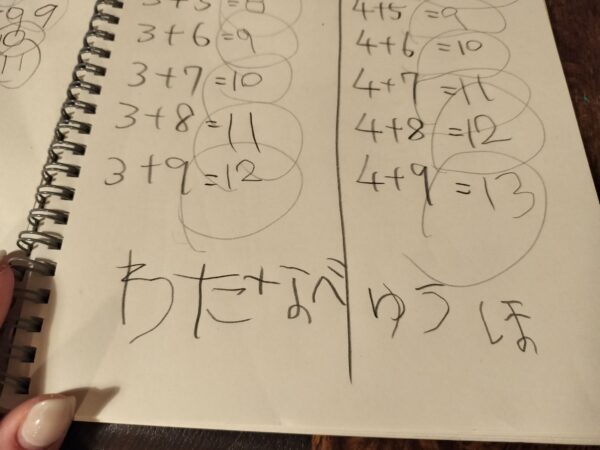 11
3+5=8
3+6=9
3+7=10
3+8=11
3+9=12
4+5=9
4+6=10
4+7=11
4+8=12
4+9=13
わたなべ ゆうほ